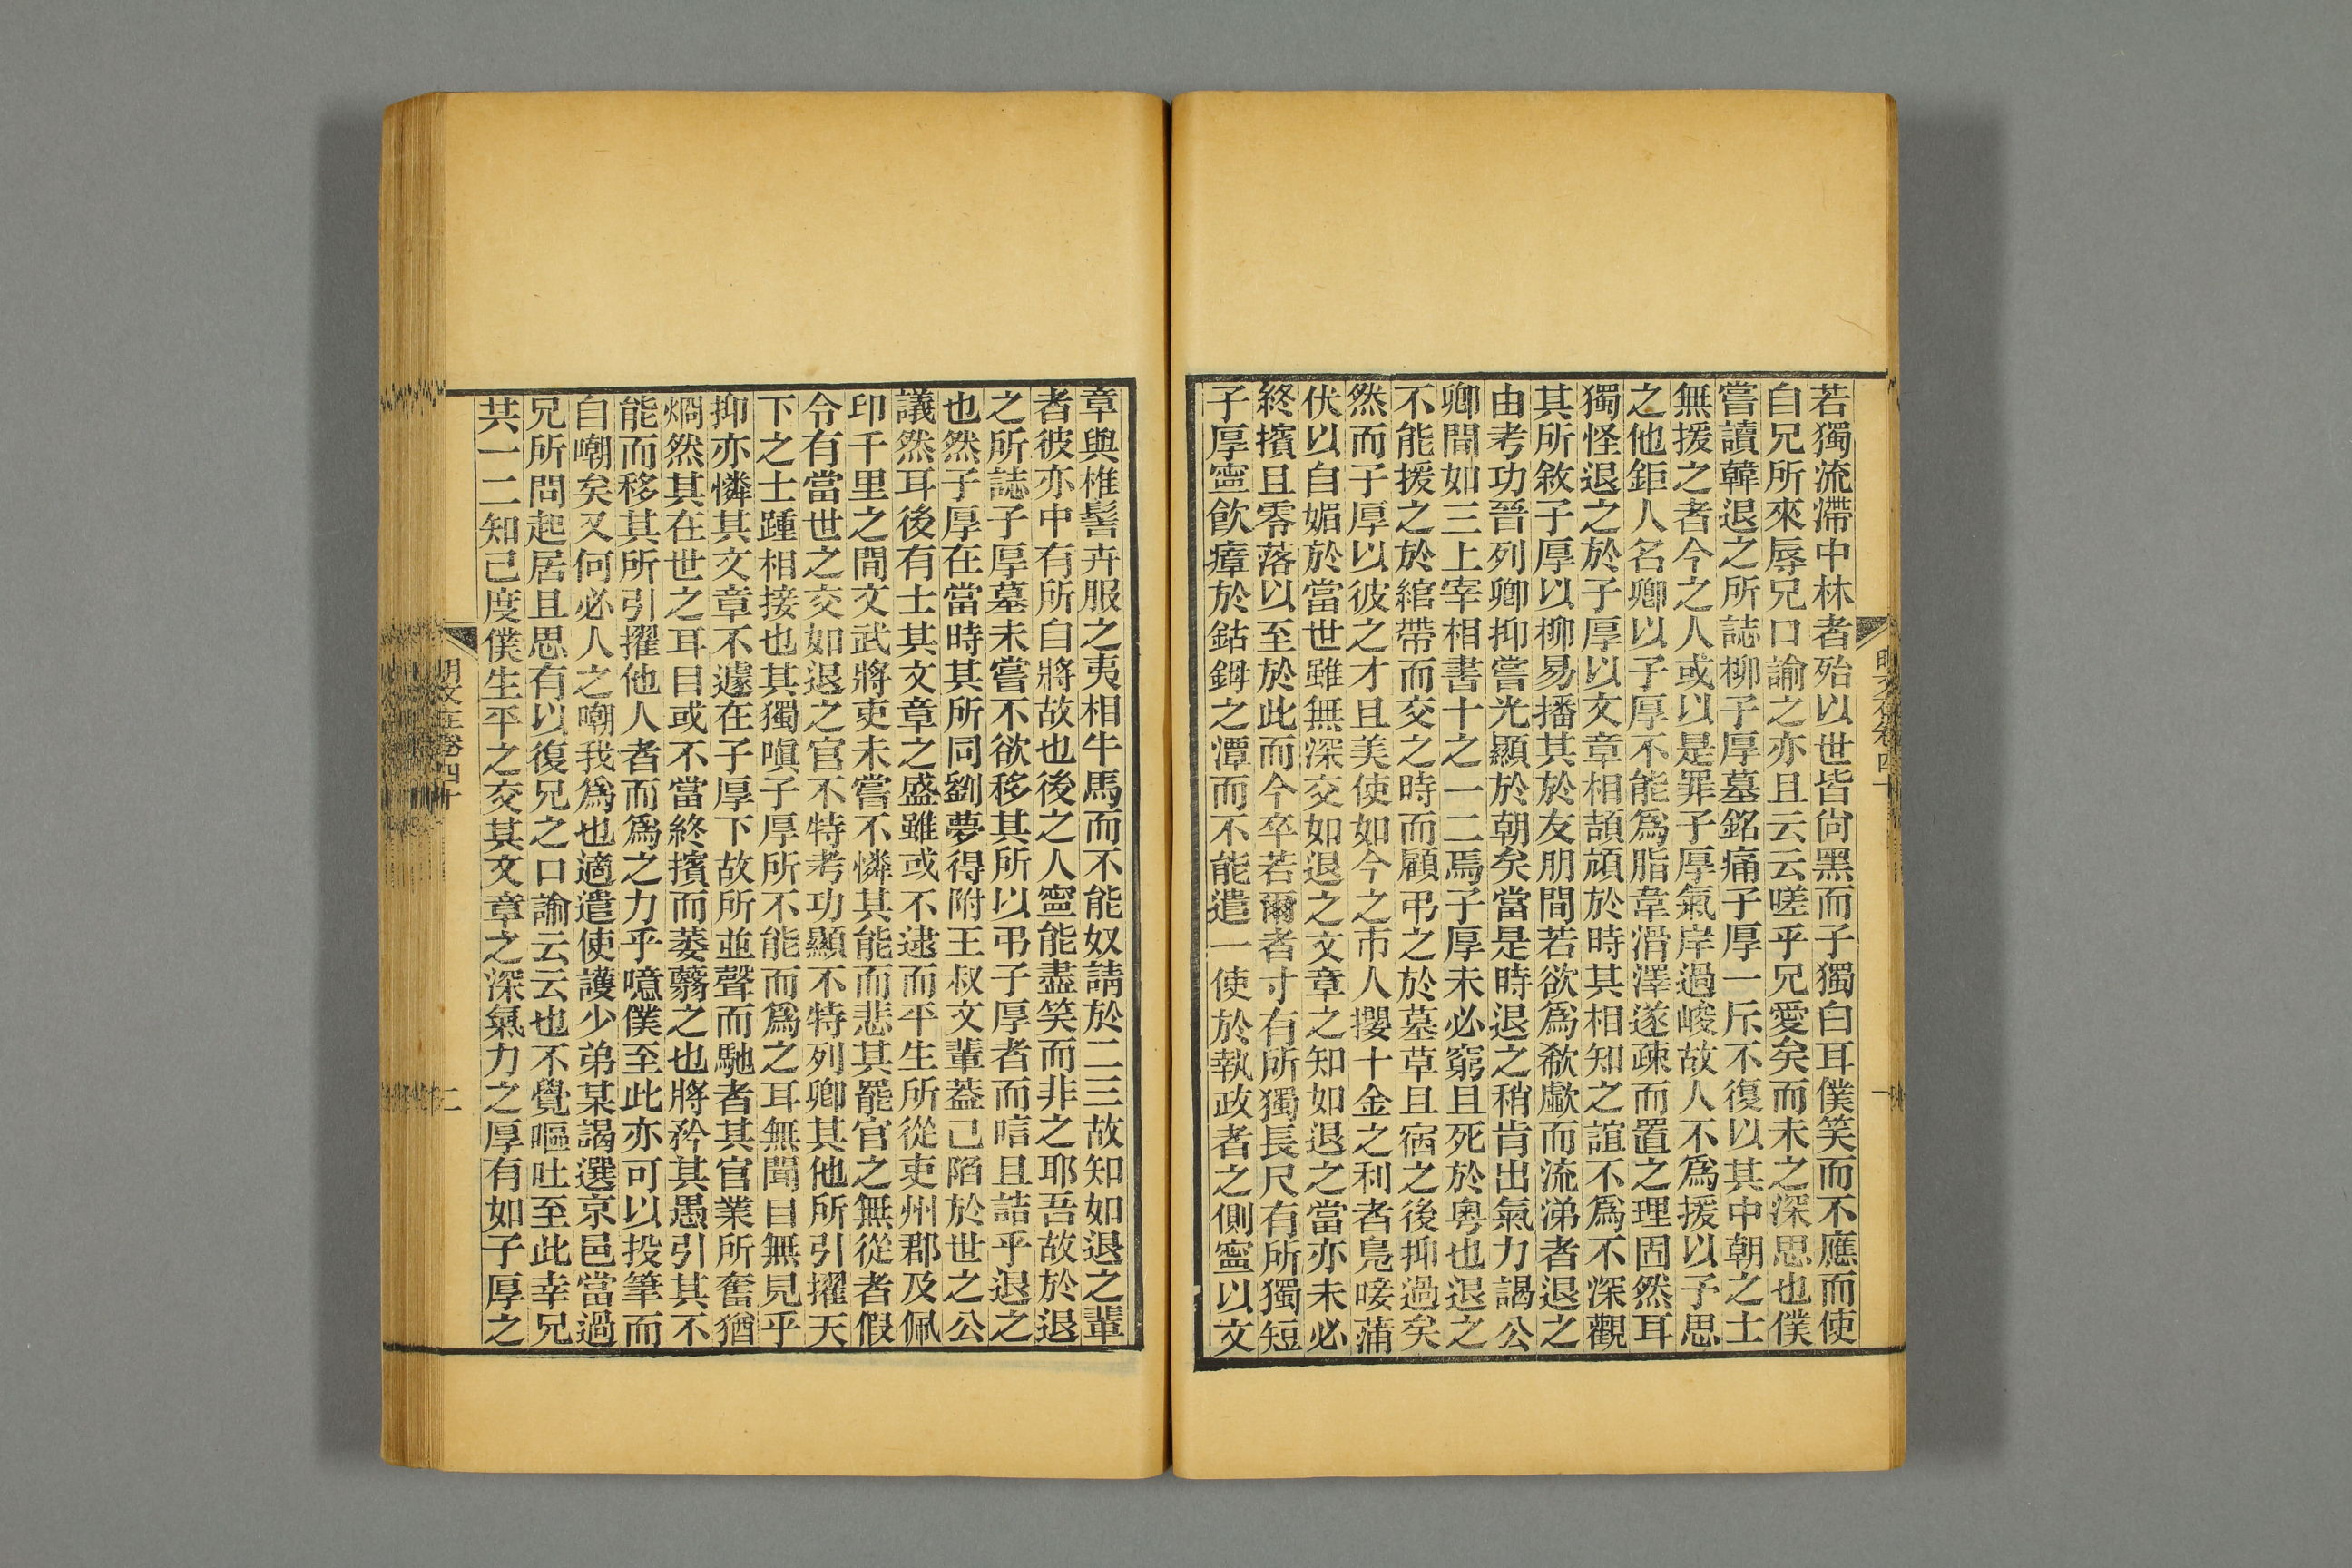 若獨流滯中林者殆以世皆尙黑而子獨白耳僕笑而不應而使
自兄所來辱兄口諭之亦且云云嗟乎兄愛矣而未之深思也僕
嘗讀韓退之所誌柳子厚墓銘痛子厚一斥不復以其中朝之士
無援之者今之人或以是罪子厚氣岸過峻故人不爲援以予思
之他鉅人名卿以子厚不能爲脂韋滑澤遂疎而置之理固然耳
獨怪退之於子厚以文章相頡頏於時其相知之誼不爲不深觀
其所敘子厚以柳易播其於友朋間若欲爲欷歔而流涕者退之
由考功晉列卿抑嘗光顯於朝矣當是時退之稍肯出氣力謁公
卿間如三上宰相書十之一二焉子厚未必窮且死於粵也退之
不能援之於綰帶而交之時而顧弔之於墓草且宿之後抑過矣
然而子厚以彼之才且美使如今之市人攖十金之利者鳧唼蒲
伏以自媚於當世雖無深交如退之文章之知如退之當亦未必
終擯且零落以至於此而今卒若爾者寸有所獨長尺有所獨短
子厚寧飮瘴於鈷鉧之潭而不能遣一使於執政者之側寧以文
章與椎髻卉服之夷相牛馬而不能奴請於二三故知如退之輩
者彼亦中有所自將故也後之人寧能盡笑而非之耶吾故於退
之所誌子厚墓未嘗不欲移其所以弔子厚者而唁且詰乎退之
也然子厚在當時其所同劉夢得附王叔文輩蓋已陷於世之公
議然耳後有士其文章之盛雖或不逮而平生所從吏州郡及佩
印千里之間文武將吏未嘗不憐其能而悲其罷官之無從者假
令有當世之交如退之官不特考功顯不特列卿其他所引擢天
下之士踵相接也其獨嗔子厚所不能而爲之耳無聞目無見乎
抑亦憐其文章不遽在子厚下故所並聲而馳者其官業所奮猶
烱然其在世之耳目或不當終擯而萎虋之也將矜其愚引其不
能而移其所引擢他人者而爲之力乎噫僕至此亦可以投筆而
自嘲矣又何必人之嘲我爲也適遣使護少弟某謁選京邑當過
兄所問起居且思有以復兄之口諭云云也不覺嘔吐至此幸兄
共一二知己度僕生平之交其文章之深氣力之厚有如子厚之
明文在卷四十
二